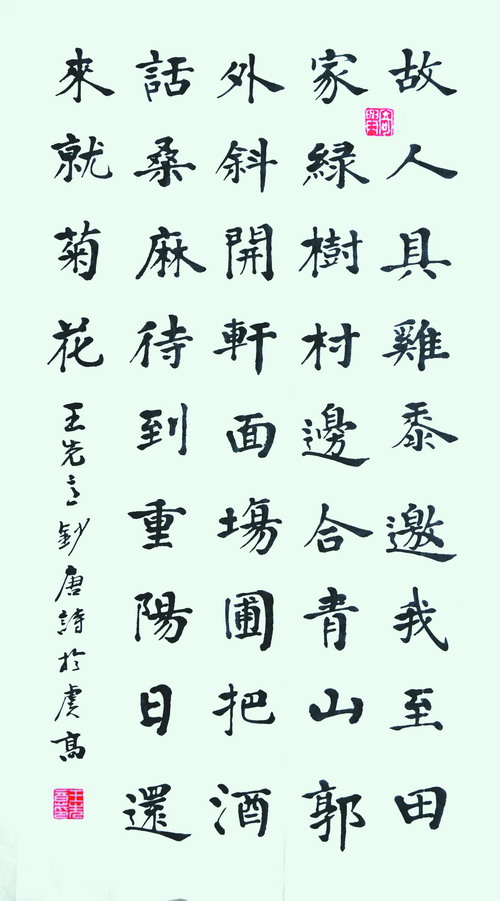 故人具雞黍邀我至田
家綠樹村邊合青山郭
外斜開軒面塲圃把酒
話桑麻待到重陽日還
來就菊花
王先意鈔唐詩於虞高